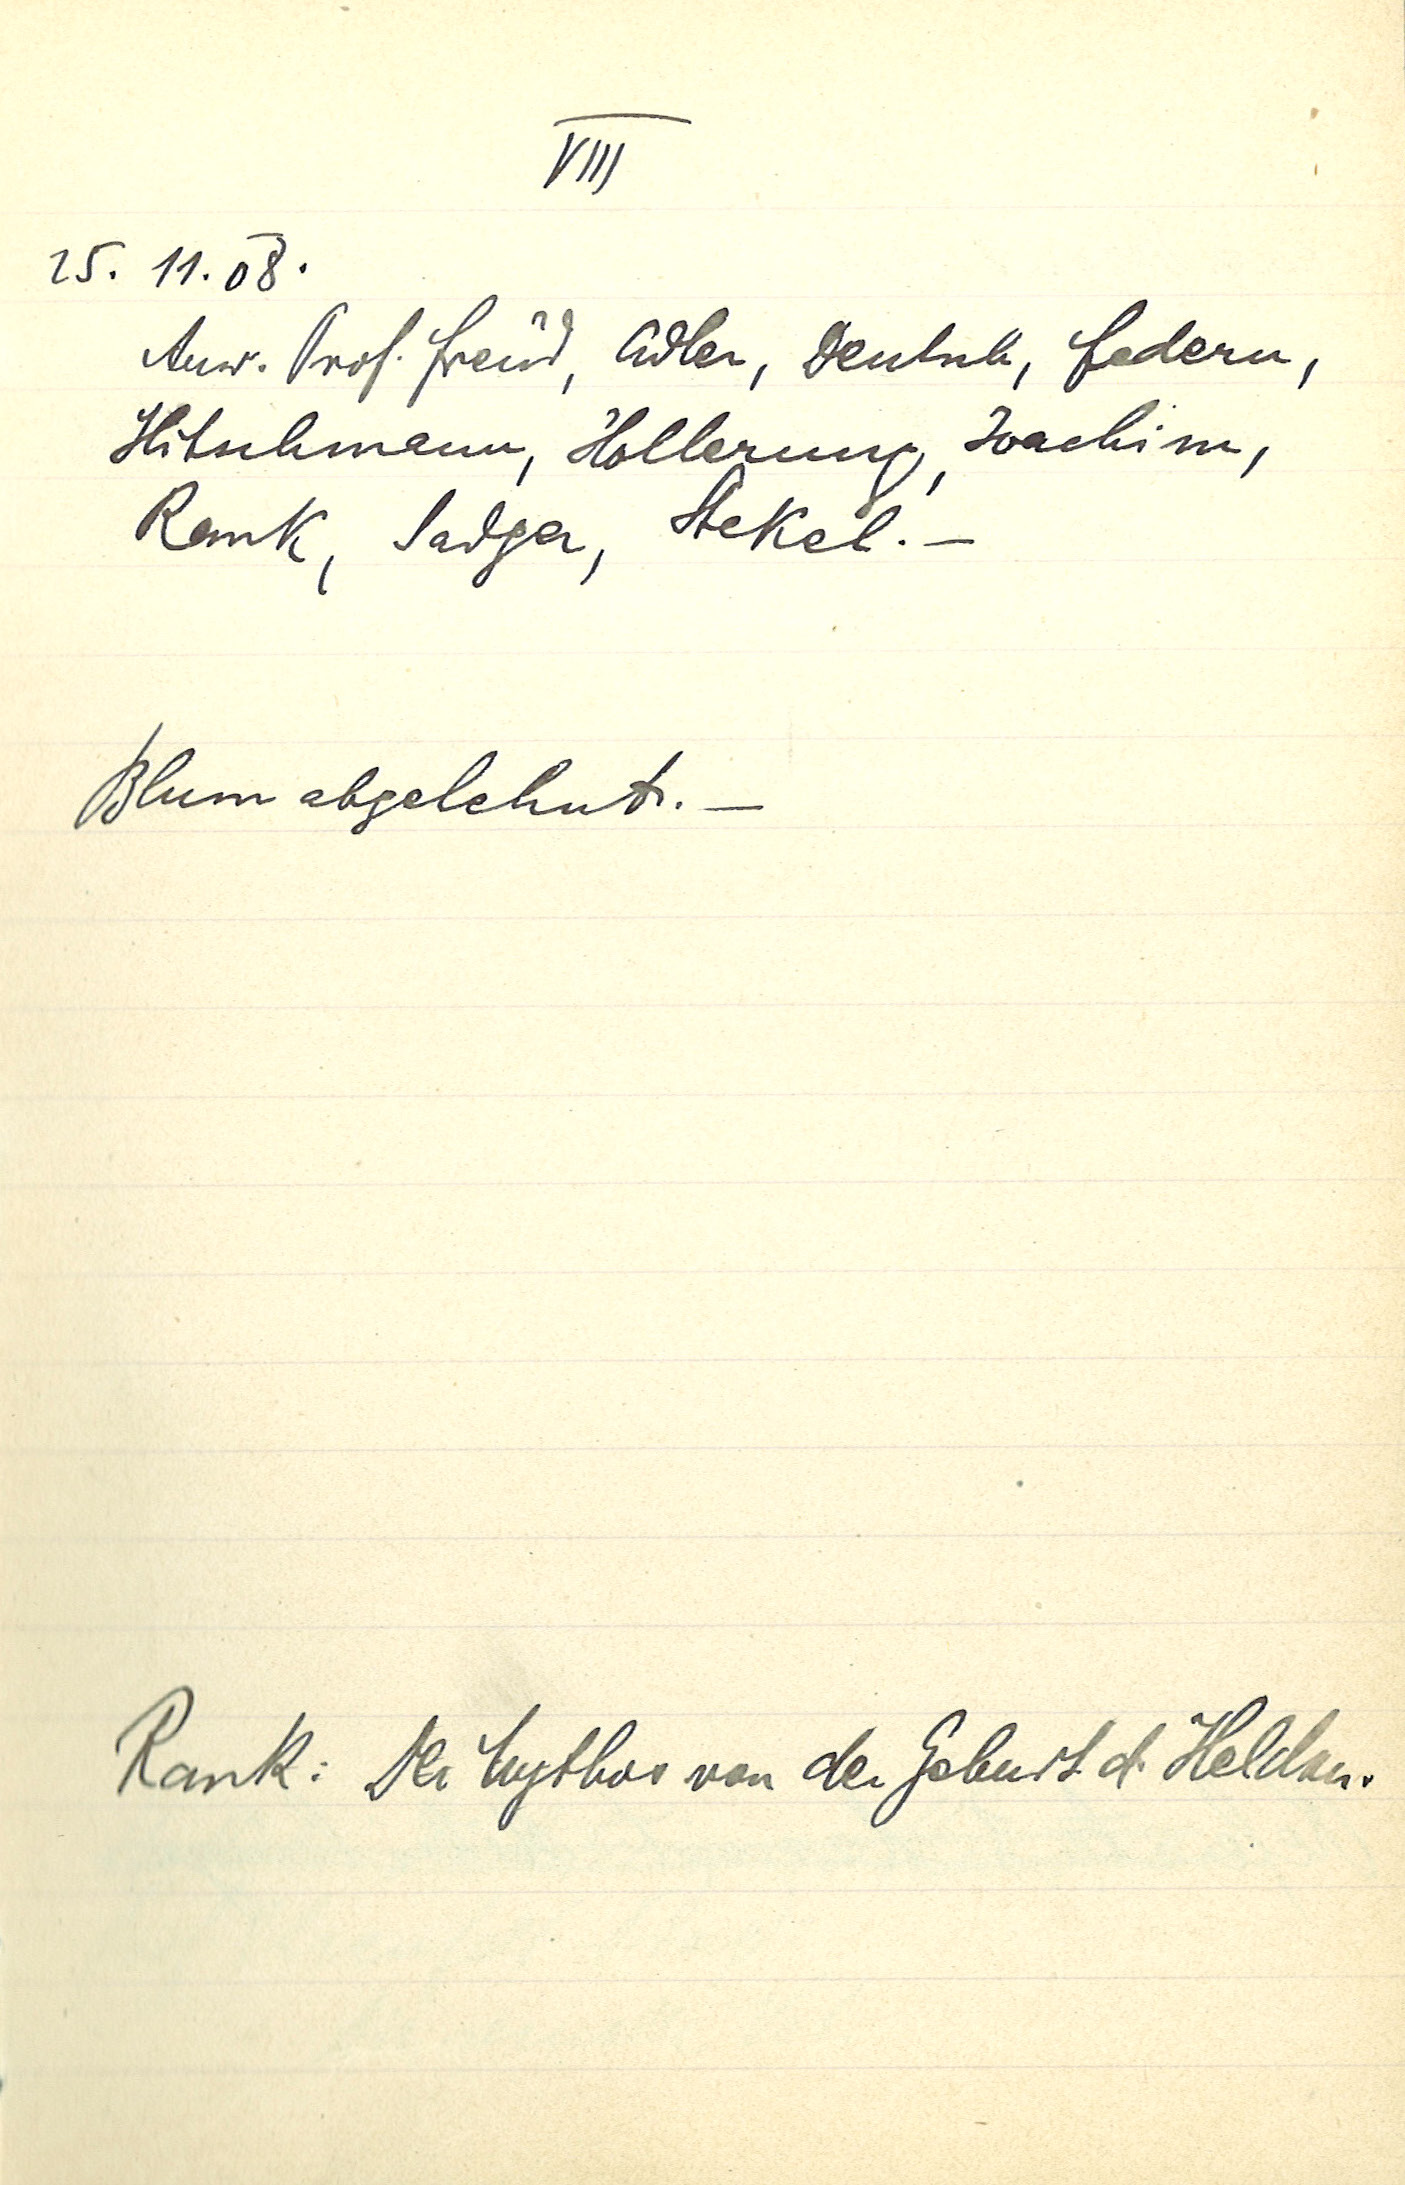 VIII
25. 11. 08.
Anw. Prof. Freud, Adler, Deutsch, Federn,
Hitschmann, Hollerung, Joachim,
Rank, Sadger, Stekel. —
Blum abgelehnt. —
Rank: Der Mythos von der Geburt d. Helden.